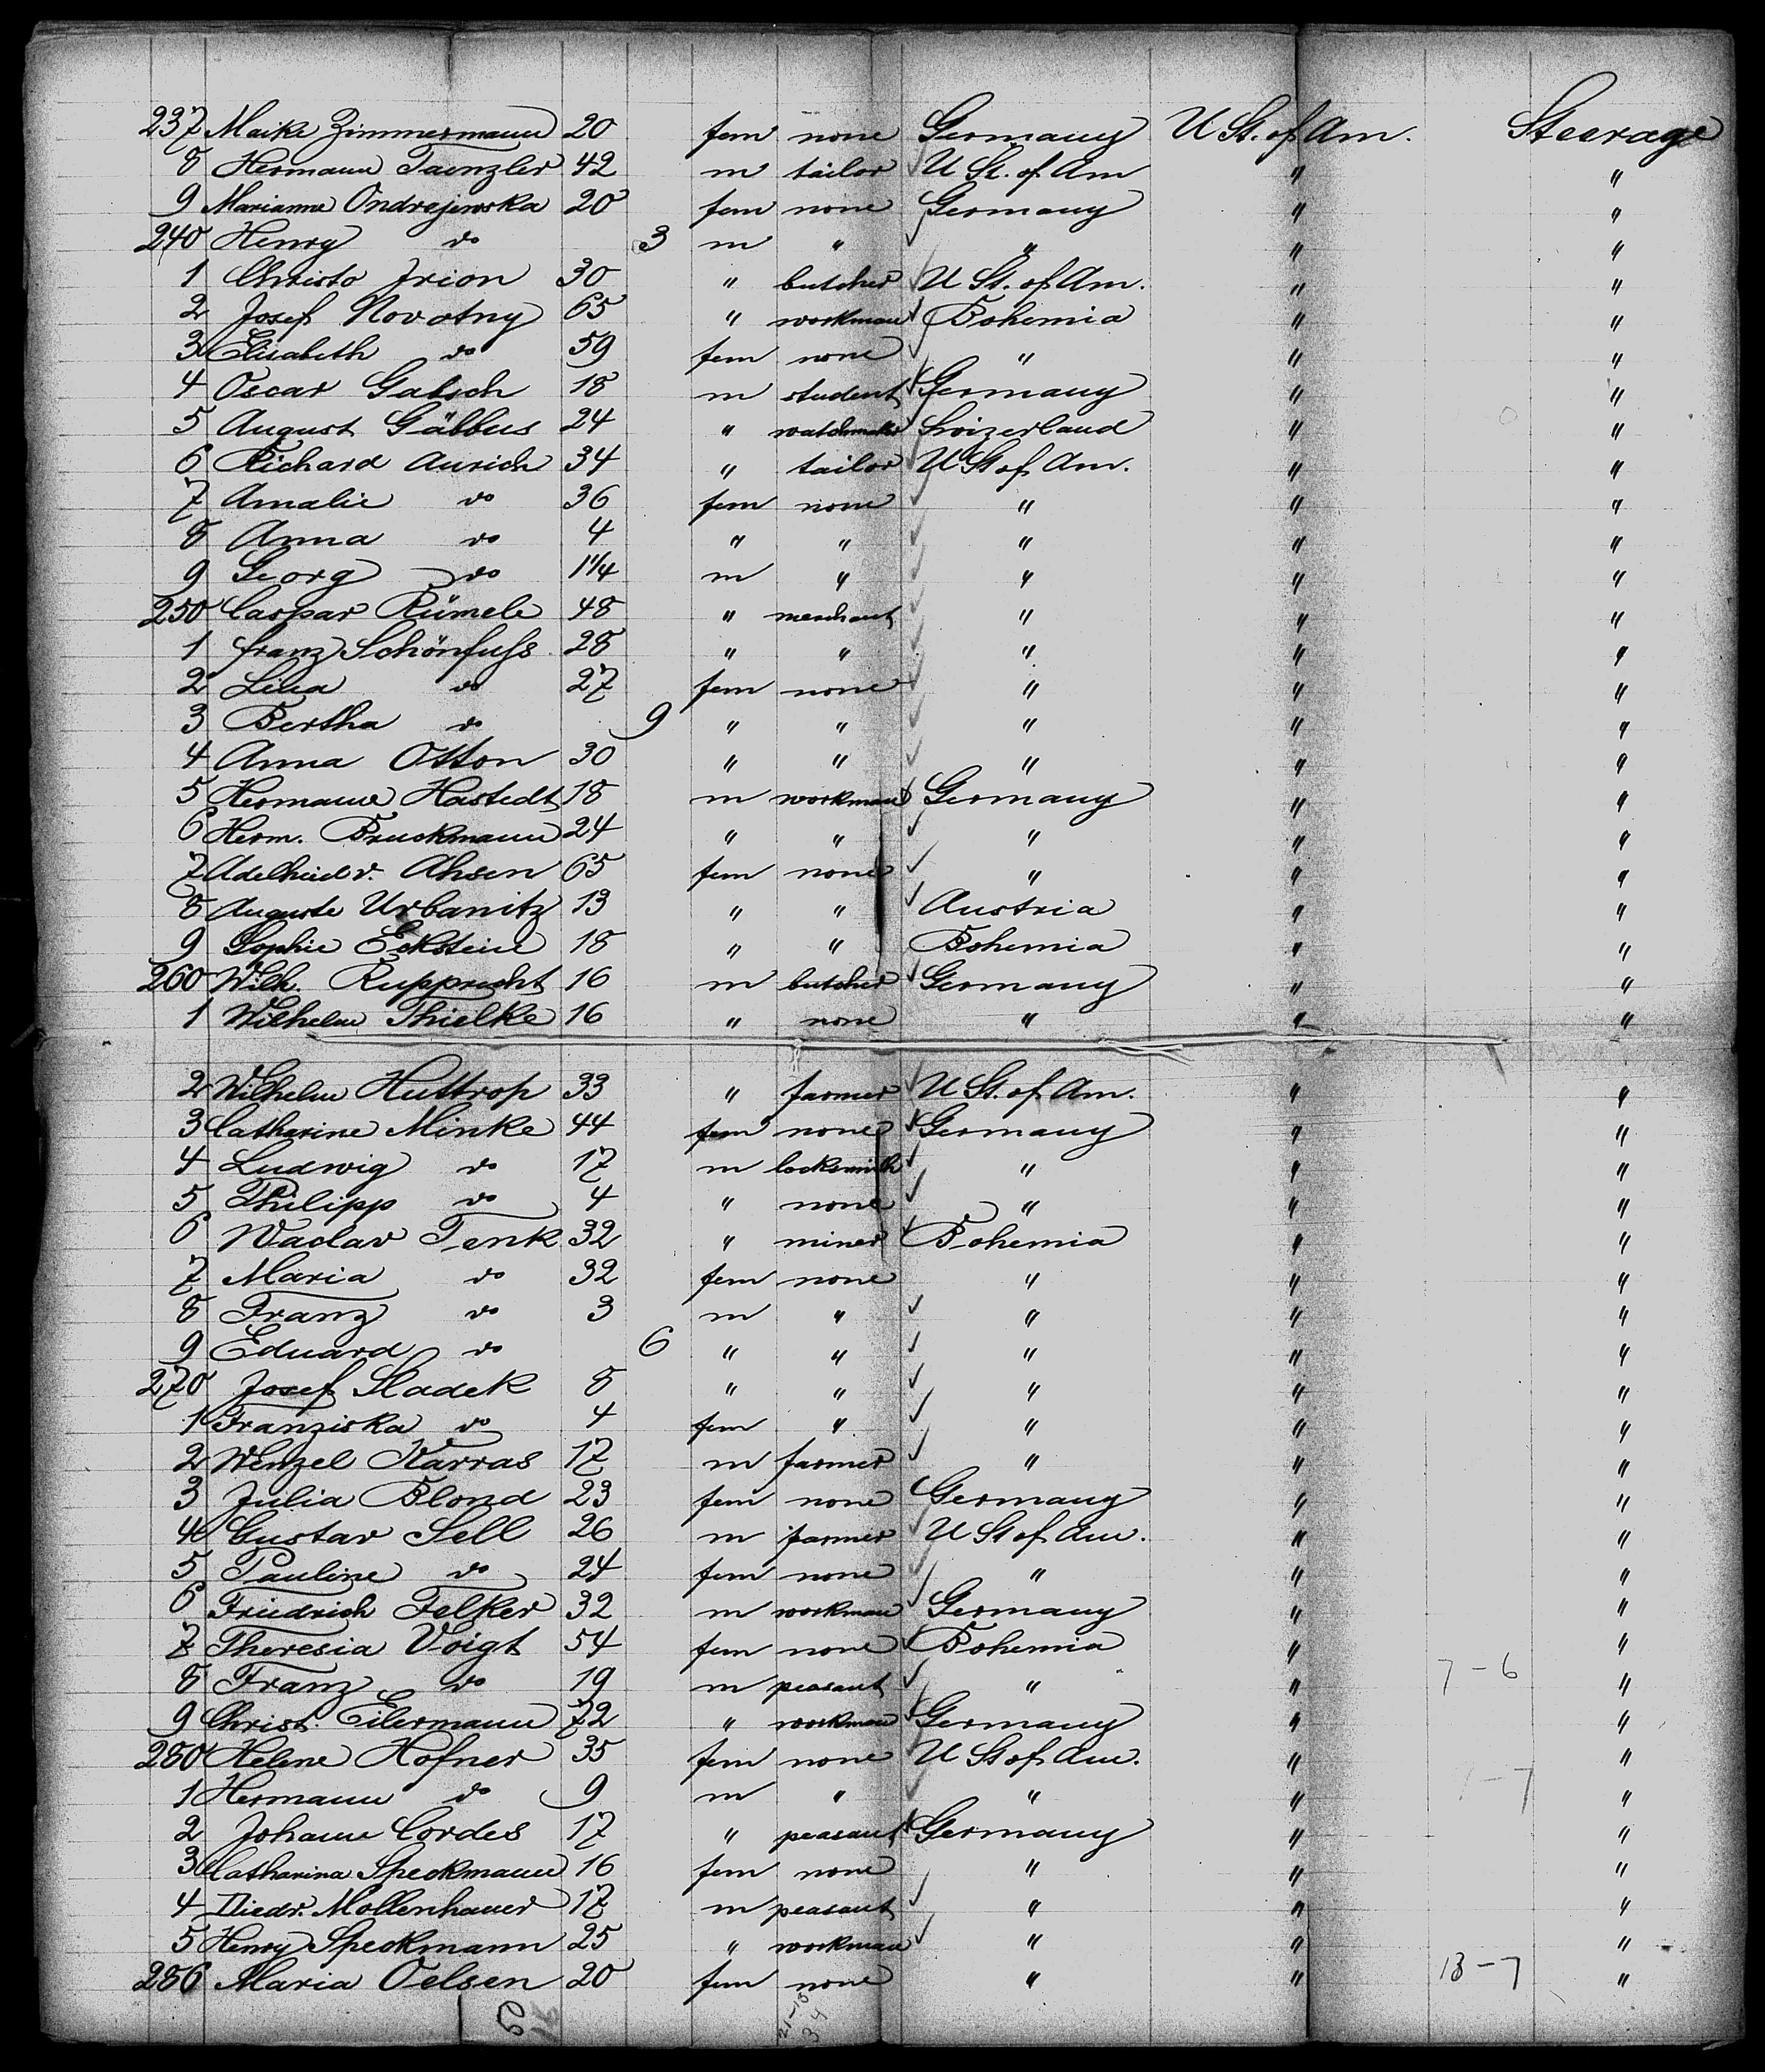 237 Maike Zimmermann 20 fem none Germany U St. of Am. Steerage
8 Hermann Taenzler 42 m tailor U St. of Am " "
9 Marianna Ondrejewska 20 fem none Germany " "
240 Henry do 3 m " " " "
1 Christo Irion 30 " butcher U St. of Am. " "
2 Josef Novotny 65 " workman Bohemia " "
3 Elisabeth do 59 fem none " " "
4 Oscar Gatsch 18 m student Germany " "
5 August Gäbbus 24 " watchmaker Swizerland " "
6 Richard Aurich 34 " tailor U St of Am. " "
7 Amalie do 36 fem none " " "
8 Anna do 4 " " " " "
9 Georg do 11/4 m " " " "
250 Caspar Rümele 48 " merchant " " "
1 Franz Schönfuss 28 " " " " "
2 Lina do 27 fem none " " "
3 Bertha do 9 " " " " "
4 Anna Otton 30 " " " " "
5 Hermann Hastedt 18 m workman Germany " "
6 Herm. Bruckmann 24 " " " " "
7 Adelheid v. Ahsen 65 fem none " " "
8 Auguste Urbanitz 13 " " Austria " "
9 Sophie Eckstein 18 " " Bohemia " "
260 Wilh. Rupprecht 16 m butcher Germany " "
1 Wilhelm Thielke 16 " none " " "
2 Wilhelm Huttrop 33 " farmer U St. of Am. " "
3 Catharine Minke 44 fem none Germany " "
4 Ludwig do 17 m locksmith " " "
5 Philipp do 4 " none " " "
6 Waclav Tenk 32 " miner Bohemia " "
7 Maria do 32 fem none " " "
8 Franz do 3 m " " " "
9 Eduard do 6 " " " " "
270 Josef Sladek 8 " " " " "
1 Franziska do 4 fem " " " "
2 Wenzel Karras 17 m farmer " " "
3 Julia Blond 23 fem none Germany " "
4 Gustav Sell 26 m farmer U St of Am. " "
5 Pauline do 24 fem none " " "
6 Friedrich Felker 32 m workman Germany " "
7 Theresia Voigt 54 fem none Bohemia " "
8 Franz do 19 m peasant " " 7-6 "
9 Christ. Eilermann 72 " workman Germany " "
280 Helene Hofner 35 fem none U St of Am. " "
1 Hermann do 9 m " " " 1-7 "
2 Johann Cordes 17 " peasant Germany " "
3 Catharina Speckmann 16 fem none " " "
4 Diedr. Mollenhauer 17 m peasant " " "
5 Henry Speckmann 25 " workman " " "
286 Maria Oelsen 20 fem none " " 13-7 "